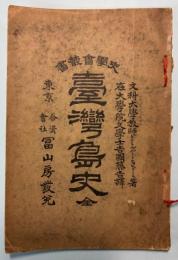 史學會叢書
文科大學教師
著
在大學院文學士吉國藤吉譯
臺灣島史 全
東京 合資會社 冨山房發兌